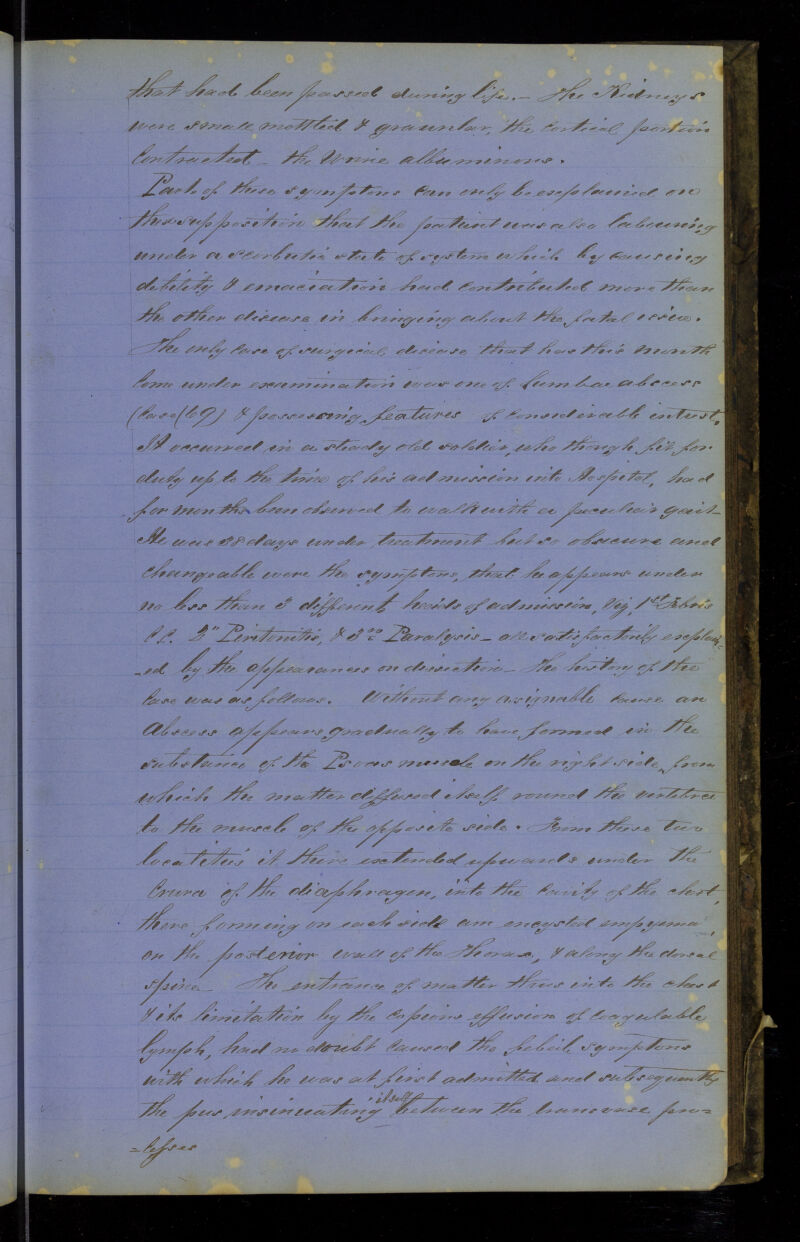 that had been passed during life. – The Kidneys
were small mottled & graunlar, the cortical portion
contracted – the Urine albuminous.
Part of these symptoms can only be explained on
the supposition that the patient was also labouring
under a scorbutic state of system which by causing
debility & emaciation had contributed more than
the other disease in bringing about the fatal issue.
The only case of surgical disease that has this month
come under examination was one of Lumbar abscess
(Case 69) & possessing features of considerable interest.
It occurred in a steady old soldier, who though fit for
duty up to the time of his admission into Hospital, had
for months been observed to walk with a peculiar gait –
He was 88 days under treatment but so obscure and
changeable were the symptoms, that he appears under
no less than 3 different heads of admission, Viz 1st Febris
C.C. 2" Peritonitis, & 3rd Paralysis – all satisfactorily explain-
-ed by the appearances on dissection – The history of the
case was as follows. Without any assignable cause an
Abscess appears gradually to have formed in the
substance of the Psoas muscle on the right side, from
which the matter diffused itself round the vertebrae
to the muscle of the opposite side. From these two
localities it then extended upwards under the
Crura of the diaphragm, into the cavity of the chest,
there forming on each side an encysted empyema,
on the posterior wall of the Thorax, & along the dorsal
spine – The entrance of matter thus into the chest
& its limitation by the copious effusion of coagulable
lymph, had no doubt caused the febrile symptoms
with which he was at first admitted and subsequently
the pus insinuating itself between the transverse pro-
=cesses